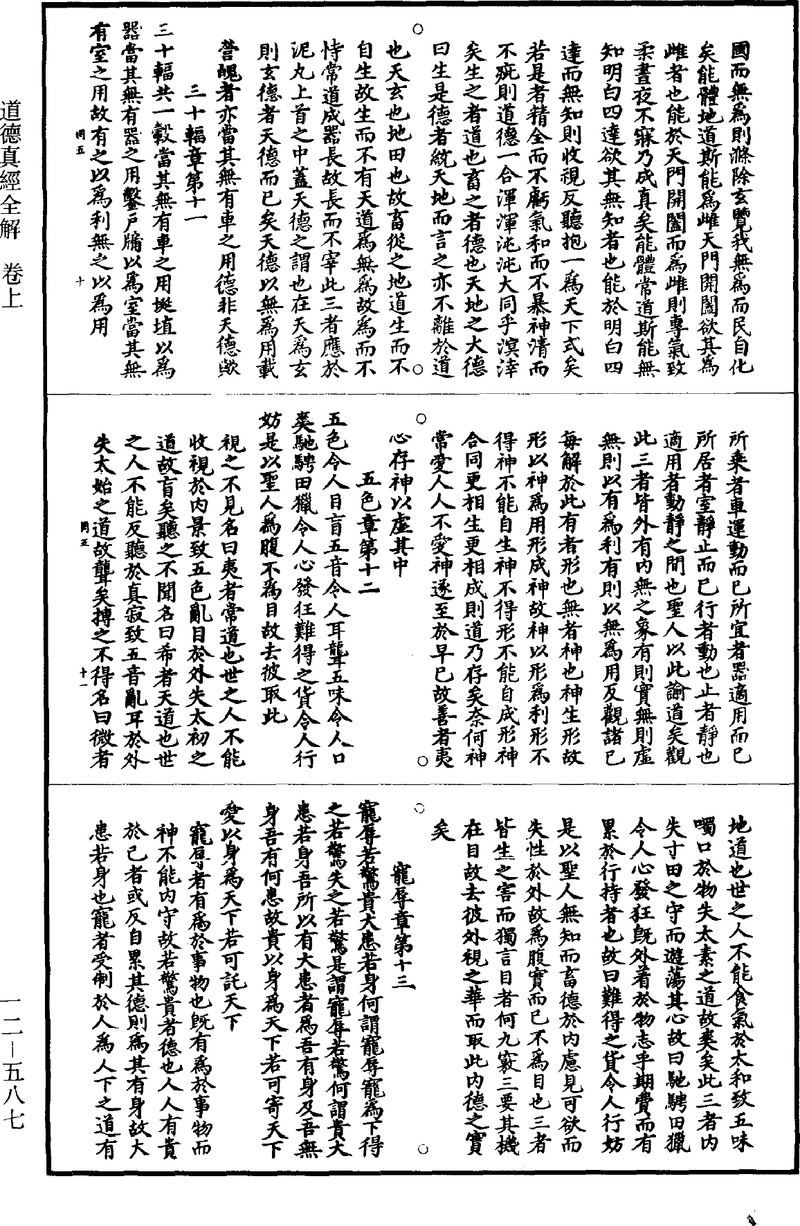 國而無為則滌除玄覽我無為而民自化
矣能體地道斯能為雌天門開闔欲其為
雌者也能於天門開闔而為雌則專氣致
柔晝夜不寐乃成真矣能體常道斯能無
知明白四達欲其無知者也能於明白四
達而無知則收視反聽抱一為天下式矣
若是者精全而不虧氣和而不暴神清而
不疵則道德一合渾渾沌沌大同乎溟涬
矣生之者道也畜之者德也天地之大德
曰生是德者統天地而言之亦不離於道
也天玄也地田也故畜從之地道生而不
自生故生而不有天道為無為故為而不
恃常道成器長故長而不宰此三者應於
泥丸上首之中蓋天德之謂也在天為玄
則玄德者天德而已矣天德以無為用載
營魄者亦當其無有車之用德非天德歟
三十輻章第十一
三十輻共一轂當其無有車之用埏埴以為
器當其無有器之用鑿戶牖以為室當其無
有室之用故有之以為利無之以為用
罔五 十
所乘者車運動而已所宜者器適用而已
所居者室靜止而已行者動也止者靜也
適用者動靜之間也聖人以此諭道矣觀
此三者皆外有內無之象有則實無則虛
無則以有為利有則以無為用反觀諸已
每解於此有者形也無者神也神生形故
形以神為用形成神故神以形為利形不
得神不能自生神不得形不能自成形神
合同更相生更相成則道乃存矣奈何神
常愛人人不愛神遂至於早已故善者夷
心存神以虛其中
五色章第十二
五色令人目盲五音令人耳聾五味令人口
爽馳騁田獵令人心發狂難得之貨令人行
妨是以聖人為腹不為目故去彼取此
視之不見名曰夷者常道也世之人不能
收視於內景致五色亂目於外失太初之
道故盲矣聽之不聞名曰希者天道也世
之人不能反聽於真寂致五音亂耳於外
失太始之道故聾矣搏之不得名曰微者
罔五 十一
地道也世之人不能食氣於太和致五味
噣口於物失太素之道故爽矣此三者內
失寸田之守而遊蕩其心故曰馳騁田獵
令人心發狂既外着於物志乎期費而有
累於行持者也故曰難得之貨令人行妨
是以聖人無知而畜德於內慮見可欲而
失性於外故為腹實而已不為目也三者
皆生之害而獨言目者何九竅三要其機
在目故去彼外視之華而取此內德之實
矣
寵辱章第十三
寵辱若驚貴大患若身何謂寵辱寵為下得
之若驚失之若驚是謂寵辱若驚何謂貴大
患若身吾所以有大患者為吾有身及吾無
身吾有何患故貴以身為天下若可寄天下
愛以身為天下若可託天下
寵辱者有為於事物也既有為於事物而
神不能內守故若驚貴者德也人人有貴
於己者或反自累其德則為其有身故大
患若身也寵者受制於人為人下之道有
道德真經全解 卷上
一二—五八七